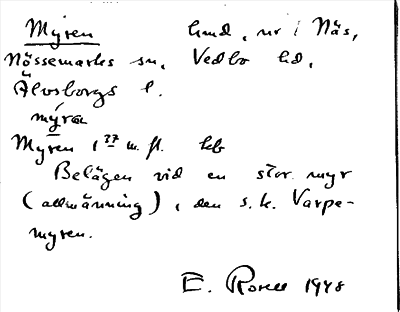 Myren hmd, nr i Näs,
Nössemarks sn, Vedbo hd,
Älvsborgs l.
mýra
Myren 1 77 m. fl. hfb
Belägen vid en stor myr
(allmänning), den s. k. Varpe-
myren.
E. Rosell 1948